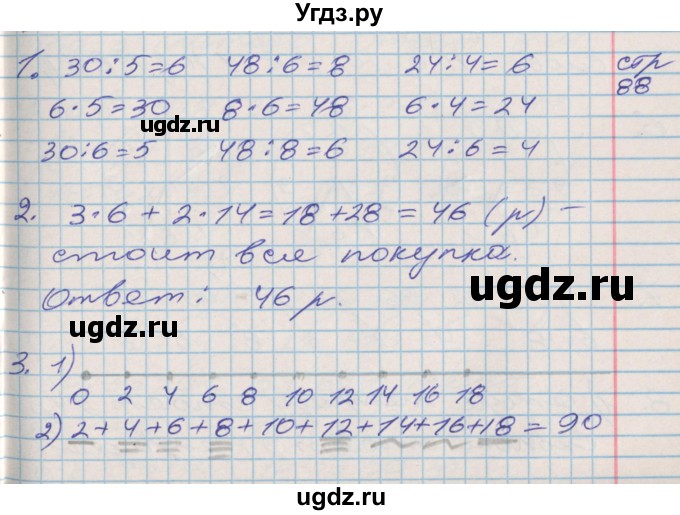 Угдз.ру
1. 30:5=6 48:6=8 24:4=6 стр
6·5=30 8·6=48 6·4=24 88
ugdz.ru
30:6=5 48:8=6 24:6=4
2. 3·6 + 2·14=18+28 = 46 (р) –
стоит вся покупка.
Ответ: 46 р.
ugdz.ru
ugdz.ru
3. 1)
0 2 4 6 8 10 12 14 16 18
2) 2+4+6+8+10+12+14+16+18=90
ugdz.ru
ugdz.ru